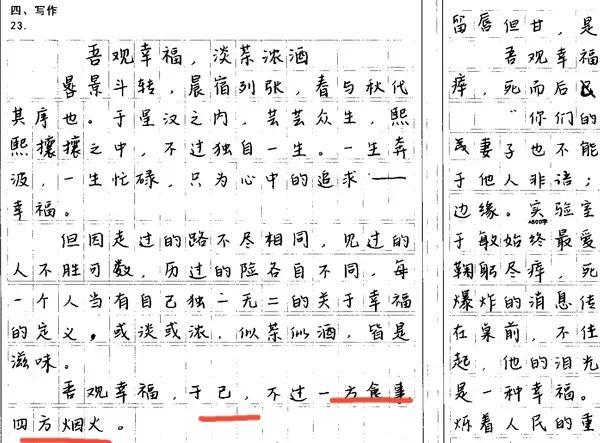 四、写作
23.
吾观幸福，淡茶浓酒
晷景斗转，晨宿列张，春与秋代
其序也。于星汉之内，芸芸众生，熙
熙攘攘之中，不过独自一生。一生奔
波，一生忙碌，只为心中的追求——
幸福。
但因走过的路不尽相同，见过的
人不胜可数，历过的险各自不同，每
一个人当有自己独一无二的关于幸福
的定义，或淡或浓，似茶似酒，皆是
滋味。
吾观幸福，于己，不过一方食事
四方烟火。
留唇但甘，是
吾观幸福
瘁，死而后已
“你们的
妻子也不能
于他人非语；
边缘。实验室
于敏始终最爱
鞠躬尽瘁，死
爆炸的消息传
在桌前，不住
起，他的泪光
是一种幸福。
炳着人民的重